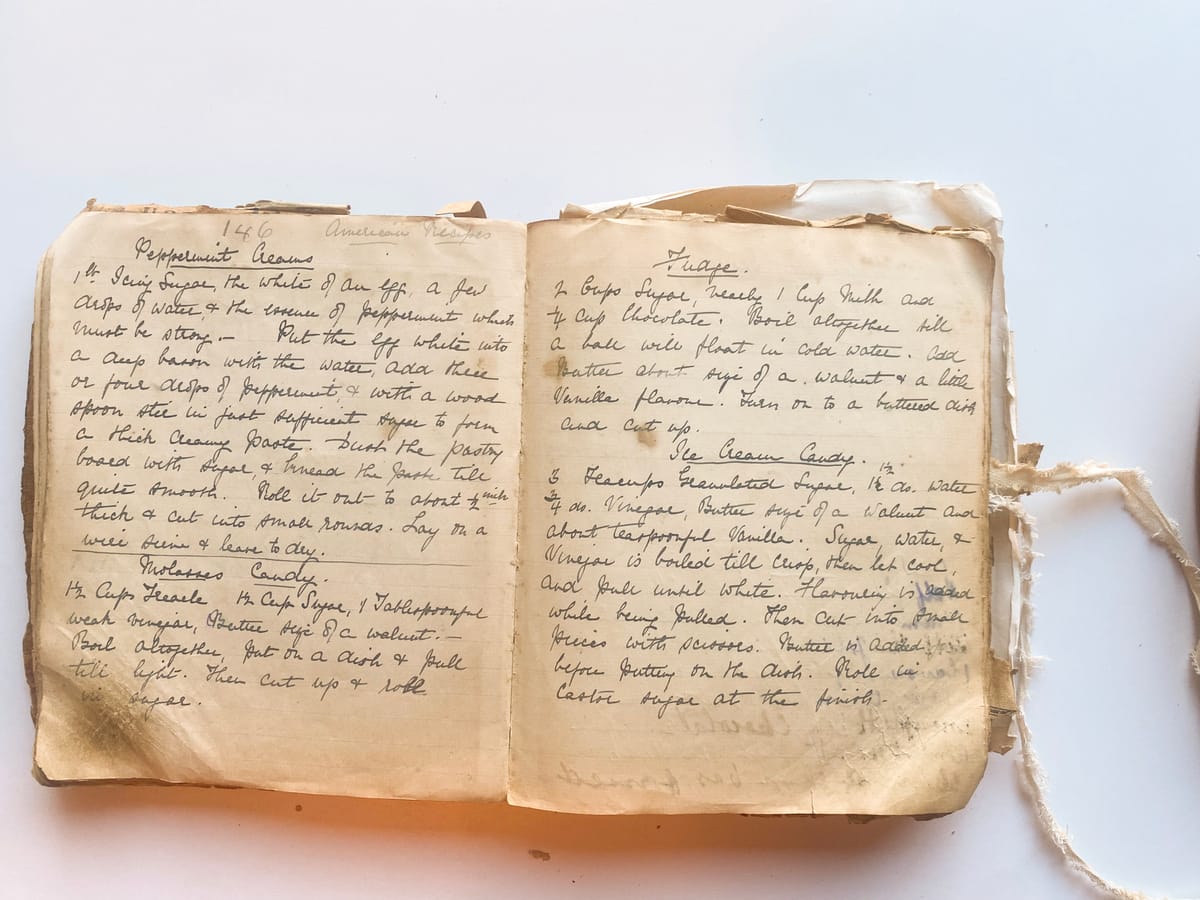 146 American Recipes
Peppermint Creams
1 lb Icing Sugar, the white of an egg, a few
drops of water, & the essence of peppermint which
must be strong. — Put the egg white into
a deep bason with the water, add three
or four drops of peppermint, & with a wood
spoon stir in just sufficient sugar to form
a thick creamy paste. Dust the pastry
board with sugar, & knead the paste till
quite smooth. Roll it out to about ½ inch
thick & cut into small rounds. Lay on a
wire sieve & leave to dry.
Molasses Candy.
1½ Cups Treacle 1½ Cup Sugar, 1 Tablespoonful
weak vinegar, Butter size of a walnut. —
Boil altogether, put on a dish & pull
till light. Then cut up & roll
in sugar.
Fudge.
2 Cups Sugar, nearly 1 Cup Milk and
¼ Cup Chocolate. Boil altogether till
a ball will float in cold water. Add
Butter about size of a walnut & a little
Vanilla flavour. Turn on to a buttered dish
and cut up.
Ice Cream Candy.
1½
3 Teacups Granulated Sugar, 1½ do. water
¾ do. Vinegar, Butter size of a walnut and
about teaspoonful Vanilla. Sugar, water, &
Vinegar is boiled till crisp, then let cool,
and pull until white. Flavouring is added
while being pulled. Then cut into small
pieces with scissors. Butter is added
before putting on the dish. Roll in
Castor sugar at the finish.